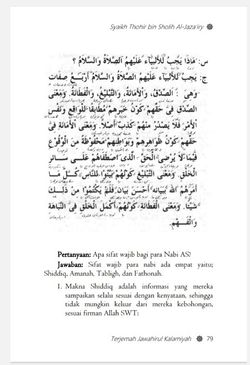 Syaikh Thohir bin Sholih Al-Jaza'iry
س: مَاذَا يَجِبُ لِلْأَنْبِيَاءِ عَلَيْهِمُ الصَّلَاةُ وَالسَّلَامُ ؟
ج: يَجِبُ لِلْأَنْبِيَاءِ عَلَيْهِمُ الصَّلَاةُ وَالسَّلَامُ أَرْبَعُ صِفَاتٍ
وَهِيَ : الصِّدْقُ، وَالْأَمَانَةُ، وَالتَّبْلِيغُ، وَالْفَطَانَةُ. وَمَعْنَى
الصِّدْقِ فِى حَقِّهِمْ كَوْنُ خَبَرِهِمْ مُطَابِقًا لِلْوَاقِعِ وَنَفْسِ
الْأَمْرِ فَلَا يَصْدُرُ مِنْهُمْ كَذِبٌ أَصْلًا. وَمَعْنَى الْأَمَانَةِ فِى
حَقِّهِمْ كَوْنُ ظَوَاهِرِهِمْ وَبَوَاطِنِهِمْ مَحْفُوظَةً مِنَ الْوُقُوعِ
فِيْمَا لَا يُرْضِى الْحَقَّ الَّذِى اصْطَفَاهُمْ عَلَى سَائِرِ
الْخَلْقِ. وَمَعْنَى التَّبْلِيغِ كَوْنُهُمْ بَيَّنُوا لِلنَّاسِ كُلَّ مَا
أَمَرَهُمُ اللهُ بِبَيَانِهِ أَحْسَنَ بَيَانٍ فَلَمْ يَكْتُمُوا مِنْ ذَلِكَ
شَيْئًا. وَمَعْنَى الْفَطَانَةِ كَوْنُهُمْ أَكْمَلَ الْخَلْقِ فِى النَّبَاهَةِ
وَالْفَهْمِ.
Pertanyaan: Apa sifat wajib bagi para Nabi AS?
Jawaban: Sifat wajib para nabi ada empat yaitu;
Shiddiq, Amanah, Tabligh, dan Fathonah.
1. Makna Shiddiq adalah informasi yang mereka
sampaikan selalu sesuai dengan kenyataan, sehingga
tidak mungkin keluar dari mereka kebohongan,
sesuai firman Allah SWT:
Terjemah Jawahirul Kalamiyah 79